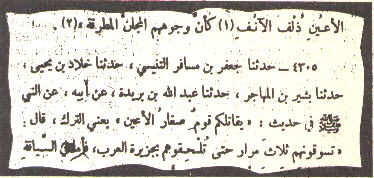 الأعين ذُلْف الآنُف (١) كأن وجوههم المجان المطرقة» (٢).
٤٣٠٥ ـ حدثنا جعفر بن مسافر التنيسي، حدثنا خلاد بن يحيى،
حدثنا بشير بن المهاجر، حدثنا عبد الله بن بريدة، عن أبيه، عن النبي
ﷺ في حديث: «يقاتلكم قوم صغار الأعين» يعني الترك، قال
«تسوقونهم ثلاث مرار حتى تُلْحِقوهم بجزيرة العرب، فأما في السياقة